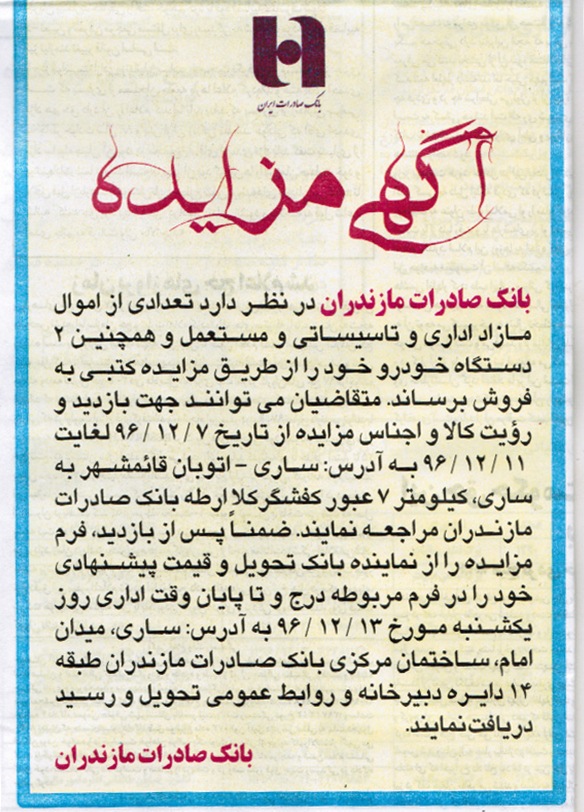 بانک صادرات ایران
آگهی مزایده
بانک صادرات مازندران در نظر دارد تعدادی از اموال
مازاد اداری و تاسیساتی و مستعمل و همچنین ۲
دستگاه خودرو خود را از طریق مزایده کتبی به
فروش برساند. متقاضیان می توانند جهت بازدید و
رؤیت کالا و اجناس مزایده از تاریخ ۹۶/۱۲/۷ لغایت
۹۶/۱۲/۱۱ به آدرس: ساری - اتوبان قائمشهر به
ساری، کیلومتر ۷ عبور کفشگرکلا ارطه بانک صادرات
مازندران مراجعه نمایند. ضمناً پس از بازدید، فرم
مزایده را از نماینده بانک تحویل و قیمت پیشنهادی
خود را در فرم مربوطه درج و تا پایان وقت اداری روز
یکشنبه مورخ ۹۶/۱۲/۱۳ به آدرس: ساری، میدان
امام، ساختمان مرکزی بانک صادرات مازندران طبقه
۱۴ دایره دبیرخانه و روابط عمومی تحویل و رسید
دریافت نمایند.
بانک صادرات مازندران